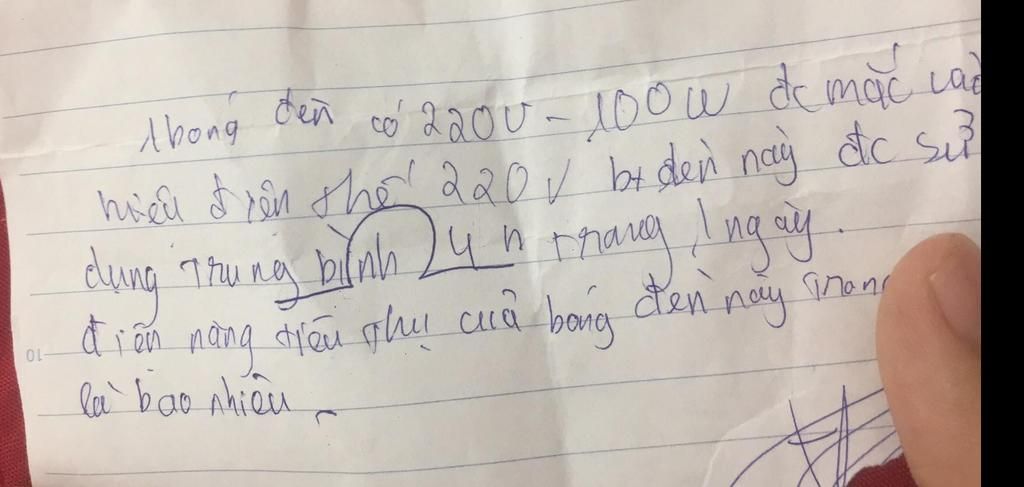 1 bóng đèn có 220V - 100W đc mắc vào
hiệu điện thế 220V bt đèn này đc sử
dụng trung bình 4h trong 1 ngày.
điện năng tiêu thụ của bóng đèn này tron
là bao nhiêu
10